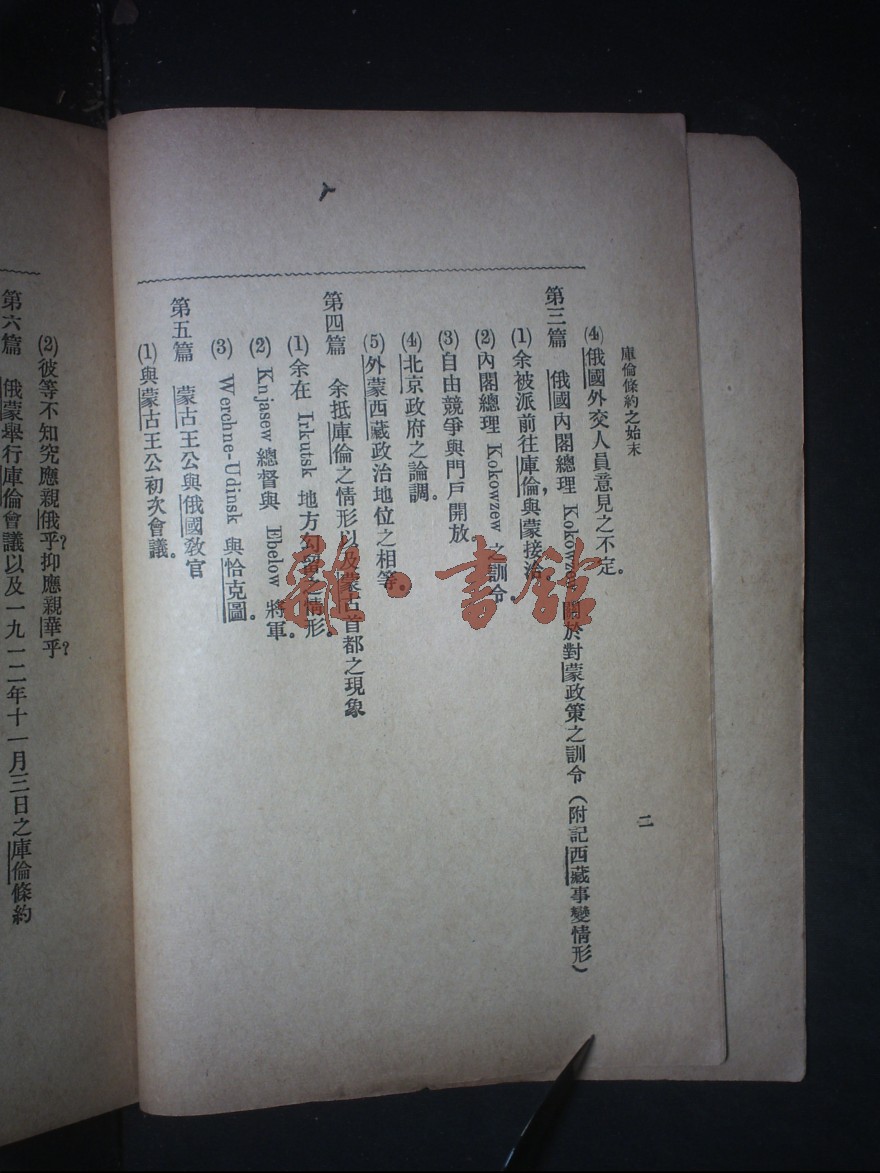 庫倫條約之始末
二
(4)俄國外交人員意見之不定。
第三篇 俄國內閣總理 Kokowzew 關於對蒙政策之訓令(附記西藏事變情形)
(1)余被派前往庫倫,與蒙接洽。
(2)內閣總理 Kokowzew 之訓令。
(3)自由競爭與門戶開放。
(4)北京政府之論調。
(5)外蒙西藏政治地位之相等。
第四篇 余抵庫倫之情形以及蒙古首都之現象
(1)余在 Irkutsk 地方勾留之情形。
(2) Knjasew 總督與 Ebelow 將軍。
(3) Werchne-Udinsk 與恰克圖。
第五篇 蒙古王公與俄國教官
(1)與蒙古王公初次會議。
(2)彼等不知究應親俄乎?抑應親華乎?
第六篇 俄蒙舉行庫倫會議以及一九一二年十一月三日之庫倫條約
雜·書館